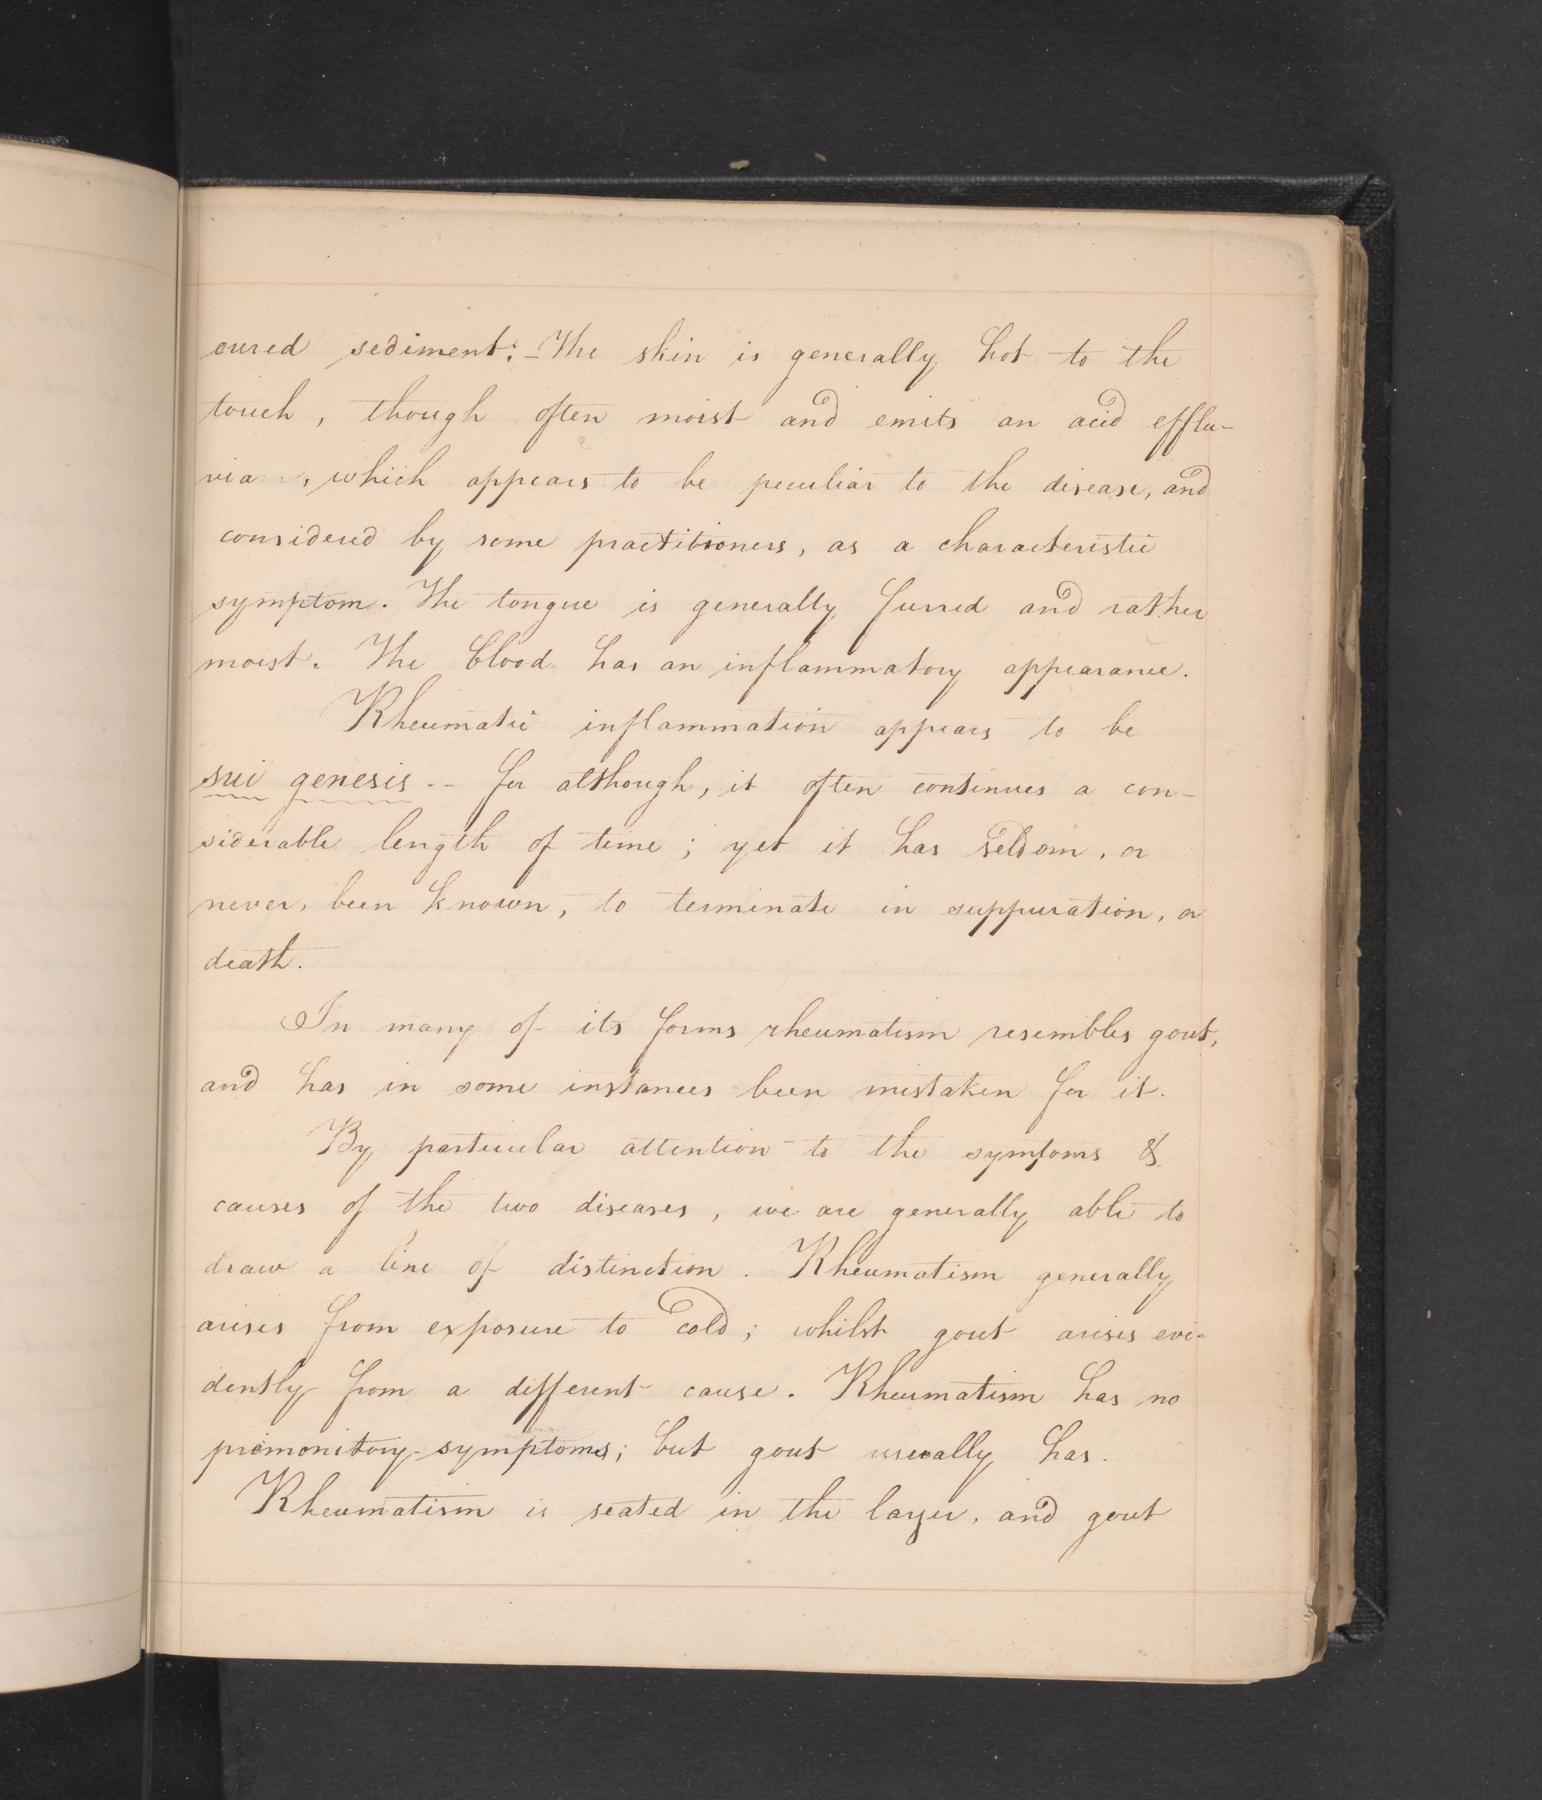 oured sediment: – The skin is generally hot to the
touch, though often moist and emits an acid efflu-
via , which appears to be peculiar to the disease, and
considered by some practitioners, as a characteristic
symptom. The tongue is generally furred and rather
moist. The blood has an inflammatory appearance.
Rheumatic inflammation appears to be
sui genesis -- for although, it often continues a con-
siderable length of time; yet it has seldom, or
never, been known, to terminate in suppuration, or
death.
In many of its forms rheumatism resembles gout,
and has in some instances been mistaken for it.
By particular attention to the symtoms &
causes of the two diseases, we are generally able to
draw a line of distinction. Rheumatism generally
arises from exposure to cold; whilst gout arises evi-
dently from a different cause. Rheumatism has no
premonitory symptoms; but gout usually has.
Rheumatism is seated in the larger, and gout